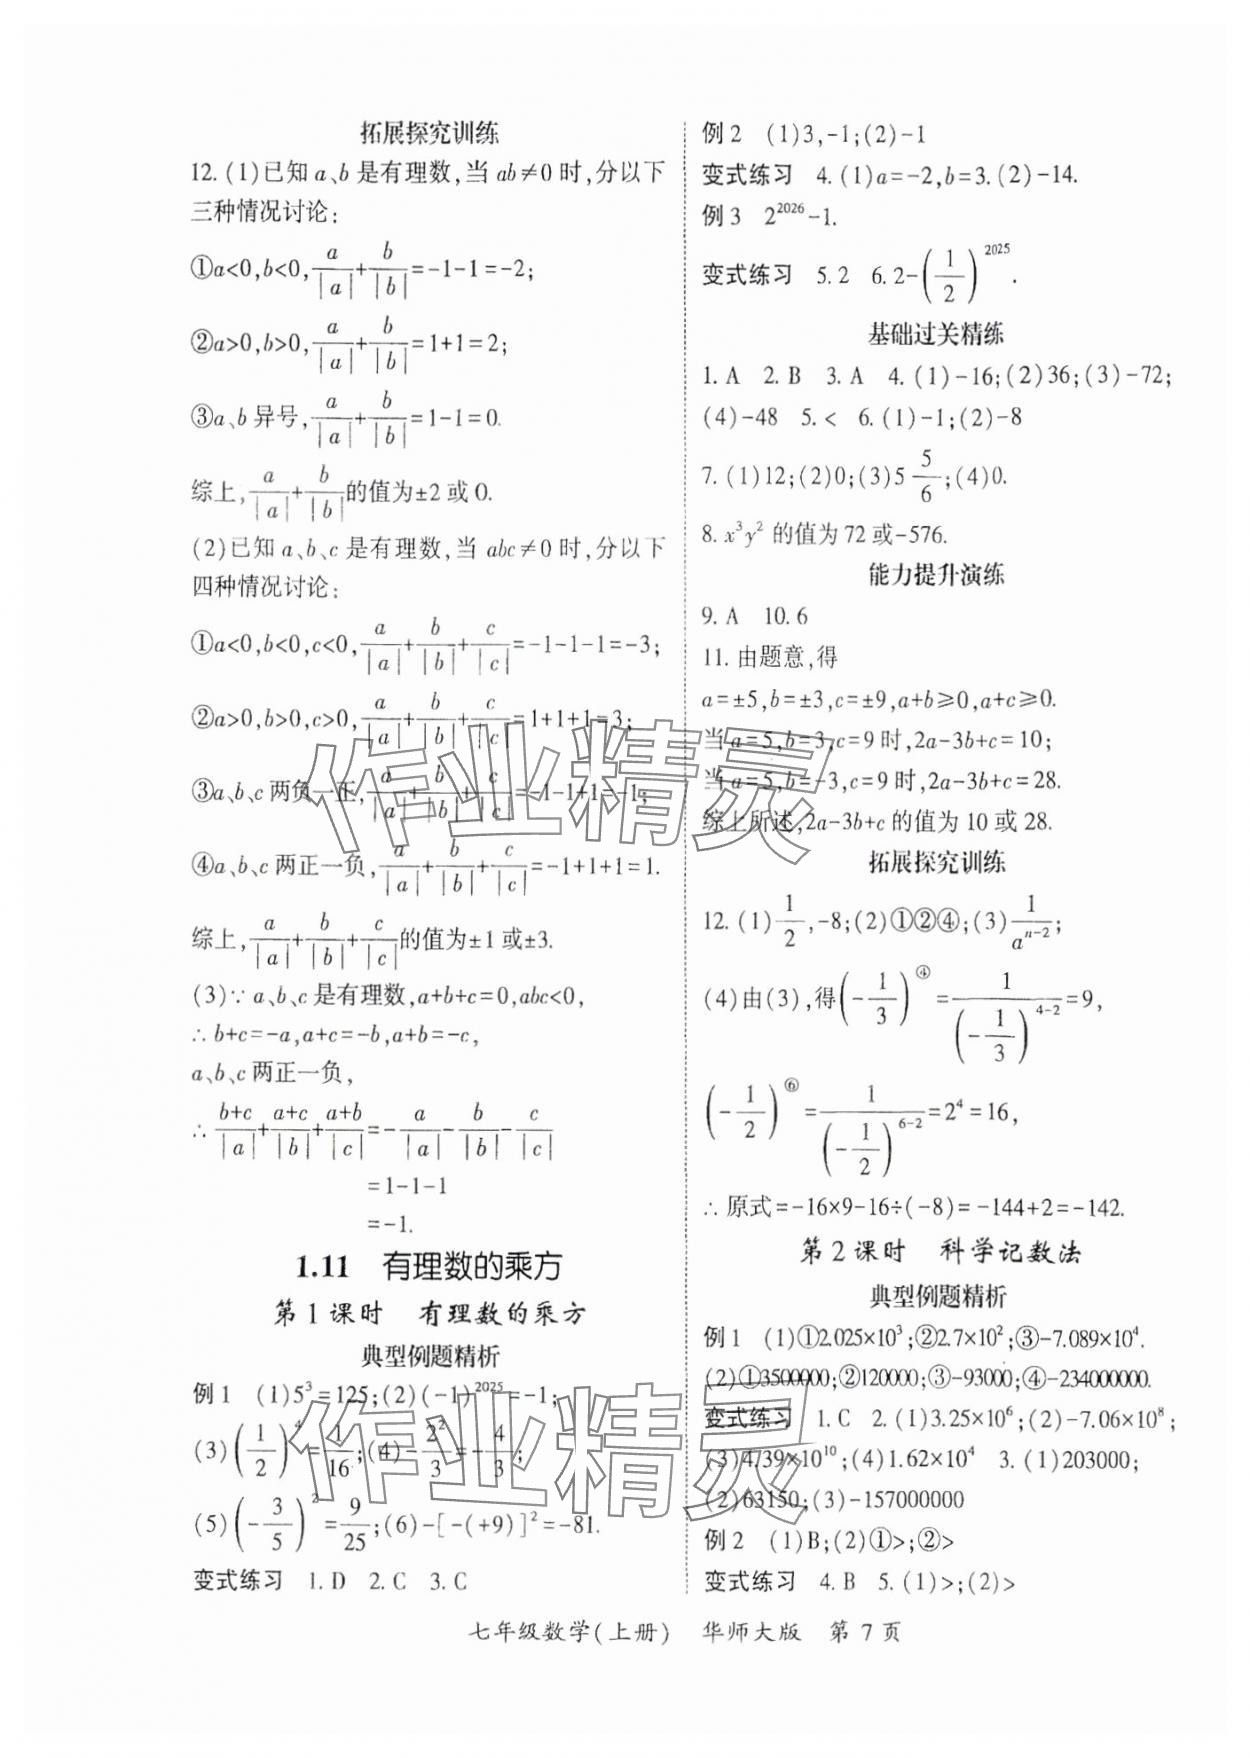 拓展探究训练
12.(1)已知 a、b 是有理数,当 ab≠0 时,分以下
三种情况讨论:
①a<0,b<0,a/|a|+b/|b|=-1-1=-2;
②a>0,b>0,a/|a|+b/|b|=1+1=2;
③a、b 异号,a/|a|+b/|b|=1-1=0.
综上,a/|a|+b/|b|的值为±2 或 0.
(2)已知 a、b、c 是有理数,当 abc≠0 时,分以下
四种情况讨论:
①a<0,b<0,c<0,a/|a|+b/|b|+c/|c|=-1-1-1=-3;
②a>0,b>0,c>0,a/|a|+b/|b|+c/|c|=1+1+1=3;
③a、b、c 两负一正,a/|a|+b/|b|+c/|c|=-1-1+1=-1;
④a、b、c 两正一负,a/|a|+b/|b|+c/|c|=-1+1+1=1.
综上,a/|a|+b/|b|+c/|c|的值为±1 或±3.
(3)∵ a、b、c 是有理数,a+b+c=0,abc<0,
∴ b+c=-a,a+c=-b,a+b=-c,
a、b、c 两正一负,
∴ (b+c)/|a|+(a+c)/|b|+(a+b)/|c|=-a/|a|-b/|b|-c/|c|
=1-1-1
=-1.
1.11 有理数的乘方
第 1 课时 有理数的乘方
典型例题精析
例 1 (1)5³=125;(2)(-1)²⁰²⁵=-1;
(3)(1/2)⁴=1/16;(4)-2²/3=-4/3;
(5)(-3/5)²=9/25;(6)-[-(+9)]²=-81.
变式练习 1.D 2.C 3.C
例 2 (1)3,-1;(2)-1
变式练习 4.(1)a=-2,b=3.(2)-14.
例 3 2²⁰²⁶-1.
变式练习 5.2 6.2-(1/2)²⁰²⁵.
基础过关精练
1.A 2.B 3.A 4.(1)-16;(2)36;(3)-72;
(4)-48 5.< 6.(1)-1;(2)-8
7.(1)12;(2)0;(3)5 5/6;(4)0.
8.x³y² 的值为 72 或-576.
能力提升演练
9.A 10.6
11.由题意,得
a=±5,b=±3,c=±9,a+b≥0,a+c≥0.
当 a=5,b=3,c=9 时,2a-3b+c=10;
当 a=5,b=-3,c=9 时,2a-3b+c=28.
综上所述,2a-3b+c 的值为 10 或 28.
拓展探究训练
12.(1)1/2,-8;(2)①②④;(3)1/aⁿ⁻²;
(4)由(3),得(-1/3)^④=1/(-1/3)⁴⁻²=9,
(-1/2)^⑥=1/(-1/2)⁶⁻²=2⁴=16,
∴ 原式=-16×9-16÷(-8)=-144+2=-142.
第 2 课时 科学记数法
典型例题精析
例 1 (1)①2.025×10³;②2.7×10²;③-7.089×10⁴.
(2)①3500000;②120000;③-93000;④-234000000.
变式练习 1.C 2.(1)3.25×10⁶;(2)-7.06×10⁸;
(3)4.39×10¹⁰;(4)1.62×10⁴ 3.(1)203000;
(2)63150;(3)-157000000
例 2 (1)B;(2)①>;②>
变式练习 4.B 5.(1)>;(2)>
七年级数学(上册) 华师大版 第 7 页
作业精灵
作业精灵